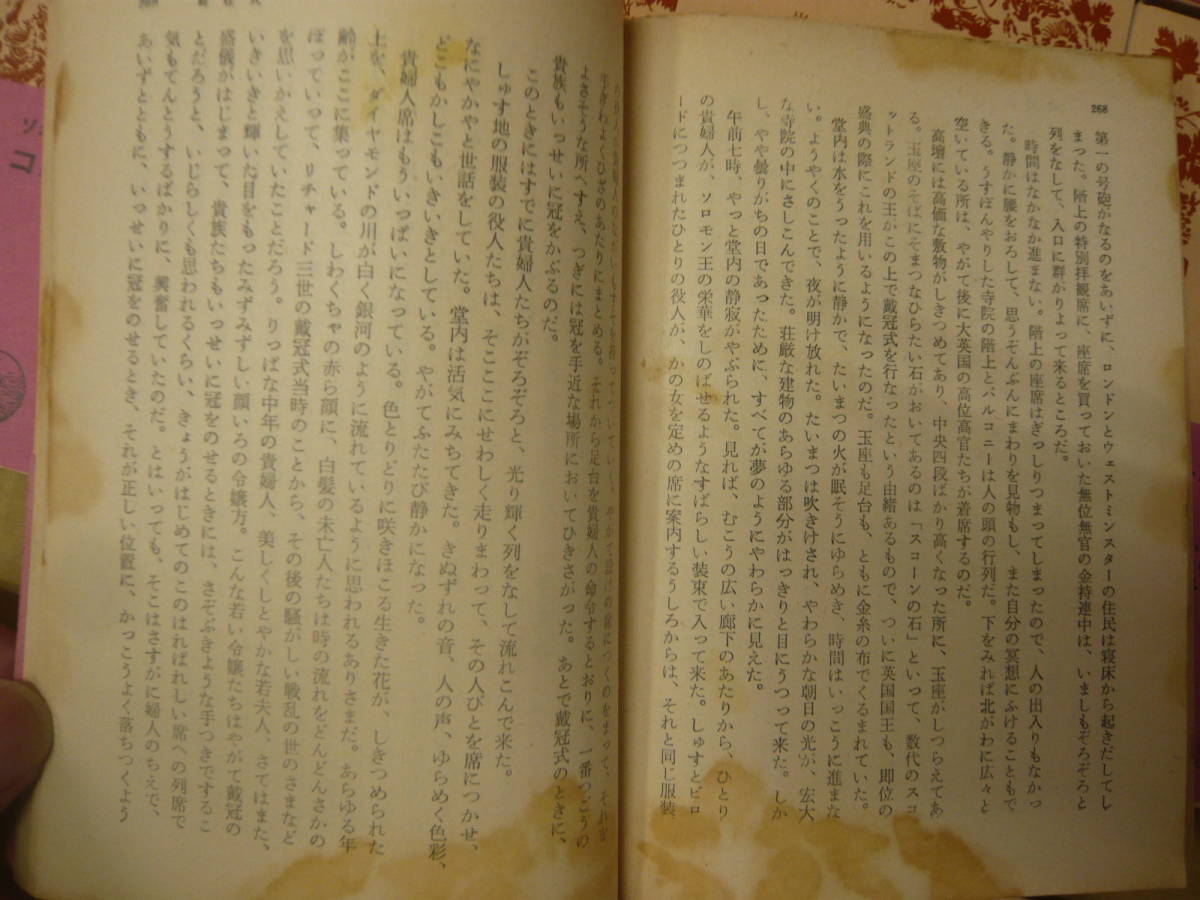 268
第一の号砲がなるのをあいずに、ロンドンとウェストミンスターの住民は寝床から起きだしてし
まった。階上の特別拝観席に、座席を買っておいた無位無官の金持連中は、いましもぞろぞろと
列をなして、入口に群がりよって来るところだ。
時間はなかなか進まない。階上の座席はぎっしりつまってしまったので、人の出入りもなかっ
た。静かに腰をおろして、思うぞんぶんにまわりを見物もし、また自分の冥想にふけることもで
きる。うすぼんやりした寺院の階上とバルコニーは人の頭の行列だ。下をみれば北がわに広々と
空いている所は、やがて後に大英国の高位高官たちが着席するのだ。
高壇には高価な敷物がしきつめてあり、中央四段ばかり高くなった所に、玉座がしつらえてあ
る。玉座のそばにそまつなひらたい石がおいてあるのは「スコーンの石」といって、数代のスコ
ットランドの王がこの上で戴冠式を行なったという由緒あるもので、ついに英国国王も、即位の
盛典の際にこれを用いるようになったのだ。玉座も足台も、ともに金糸の布でくるまれていた。
堂内は水をうったように静かで、たいまつの火が眠そうにゆらめき、時間はいっこうに進まな
い。ようやくのことで、夜が明け放れた。たいまつは吹きけされ、やわらかな朝日の光が、宏大
な寺院の中にさしこんできた。荘厳な建物のあらゆる部分がはっきりと目にうつって来た。しか
し、やや曇りがちの日であったために、すべてが夢のようにやわらかに見えた。
午前七時、やっと堂内の静寂がやぶられた。見れば、むこうの広い廊下のあたりから、ひとり
の貴婦人が、ソロモン王の栄華をしのばせるようなすばらしい装束で入って来た。しゅすとビロ
ードにつつまれたひとりの役人が、かの女を定めの席に案内するうしろからは、それと同じ服装
手ぎわよくひざのあたりにまとめる。それから足台を貴婦人の命令するとおりに、一番つごうの
よさそうな所へすえ、つぎには冠を手近な場所においてひきさがった。あとで戴冠式のときに、
貴族もいっせいに冠をかぶるのだ。
このときにはすでに貴婦人たちがぞろぞろと、光り輝く列をなして流れこんで来た。
しゅす地の服装の役人たちは、そこここにせわしく走りまわって、その人びとを席につかせ、
なにやかやと世話をしていた。堂内は活気にみちてきた。きぬずれの音、人の声、ゆらめく色彩、
どこもかしこもいきいきとしている。やがてふたたび静かになった。
貴婦人席はもういっぱいになっている。色とりどりに咲きほこる生きた花が、しきつめられた
上を、ダイヤモンドの川が白く銀河のように流れているように思われるありさまだ。あらゆる年
齢がここに集っている。しわくちゃの赤ら顔に、白髪の未亡人たちは時の流れをどんどんさかの
ぼっていって、リチャード三世の戴冠式当時のことから、その後の騒がしい戦乱の世のさまなど
を思いかえしていたことだろう。りっぱな中年の貴婦人、美しくしとやかな若夫人、さてはまた、
いきいきと輝いた目をもったみずみずしい顔いろの令嬢方。こんな若い令嬢たちはやがて戴冠の
盛儀がはじまって、貴族たちもいっせいに冠をのせるときには、さぞぶきような手つきでするこ
とだろうと、いじらしくも思われるくらい、きょうがはじめてのこのはればれしい席への列席で
気もてんとうするばかりに、興奮していたのだ。とはいっても、そこはさすがに婦人のちえで、
あいずとともに、いっせいに冠をのせるとき、それが正しい位置に、かっこうよく落ちつくよう
コ